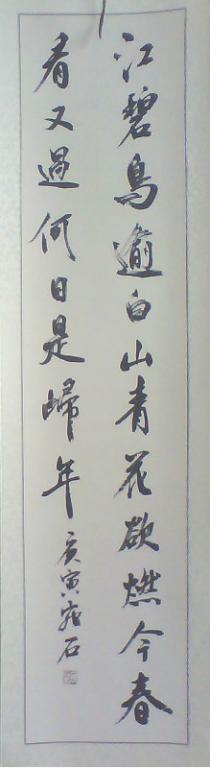 江碧鳥逾白山青花欲燃今春
看又過何日是歸年
寅石